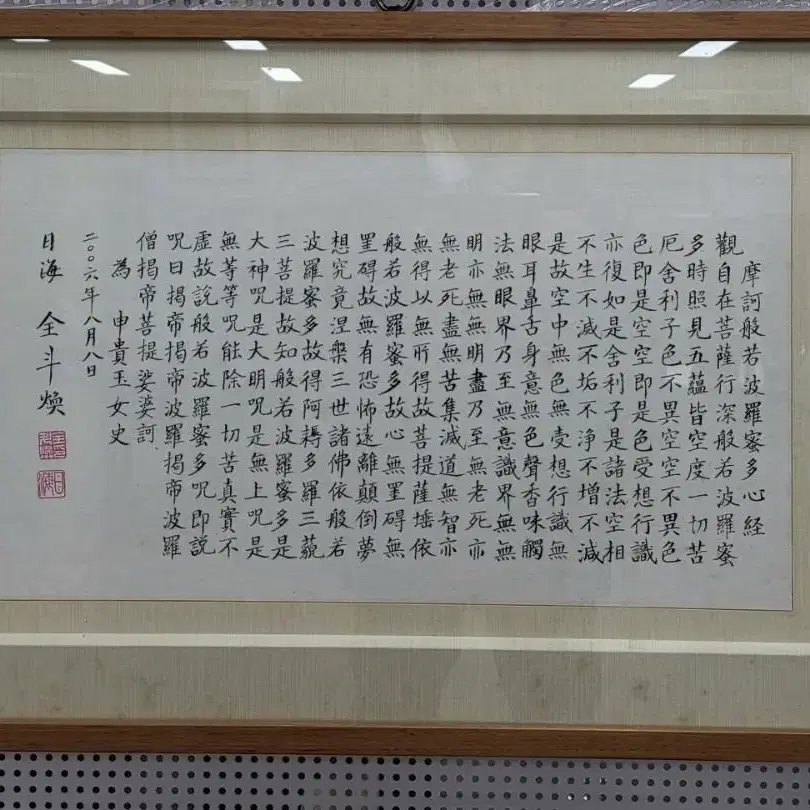 摩訶般若波羅蜜多心経
觀自在菩薩行深般若波羅蜜
多時照見五蘊皆空度一切苦
厄舍利子色不異空空不異色
色即是空空即是色受想行識
亦復如是舍利子是諸法空相
不生不滅不垢不浄不增不減
是故空中無色無受想行識無
眼耳鼻舌身意無色聲香味觸
法無眼界乃至無意識界無無
明亦無無明盡乃至無老死亦
無老死盡無苦集滅道無智亦
無得以無所得故菩提薩埵依
般若波羅蜜多故心無罣碍無
罣碍故無有恐怖遠離顛倒夢
想究竟涅槃三世諸佛依般若
波羅蜜多故得阿耨多羅三藐
三菩提故知般若波羅蜜多是
大神呪是大明呪是無上呪是
無等等呪能除一切苦真實不
虛故說般若波羅蜜多呪即說
呪曰揭帝揭帝波羅揭帝波羅
僧揭帝菩提娑婆訶
為 申貴玉女史
二〇〇六年八月八日
日海 全斗煥